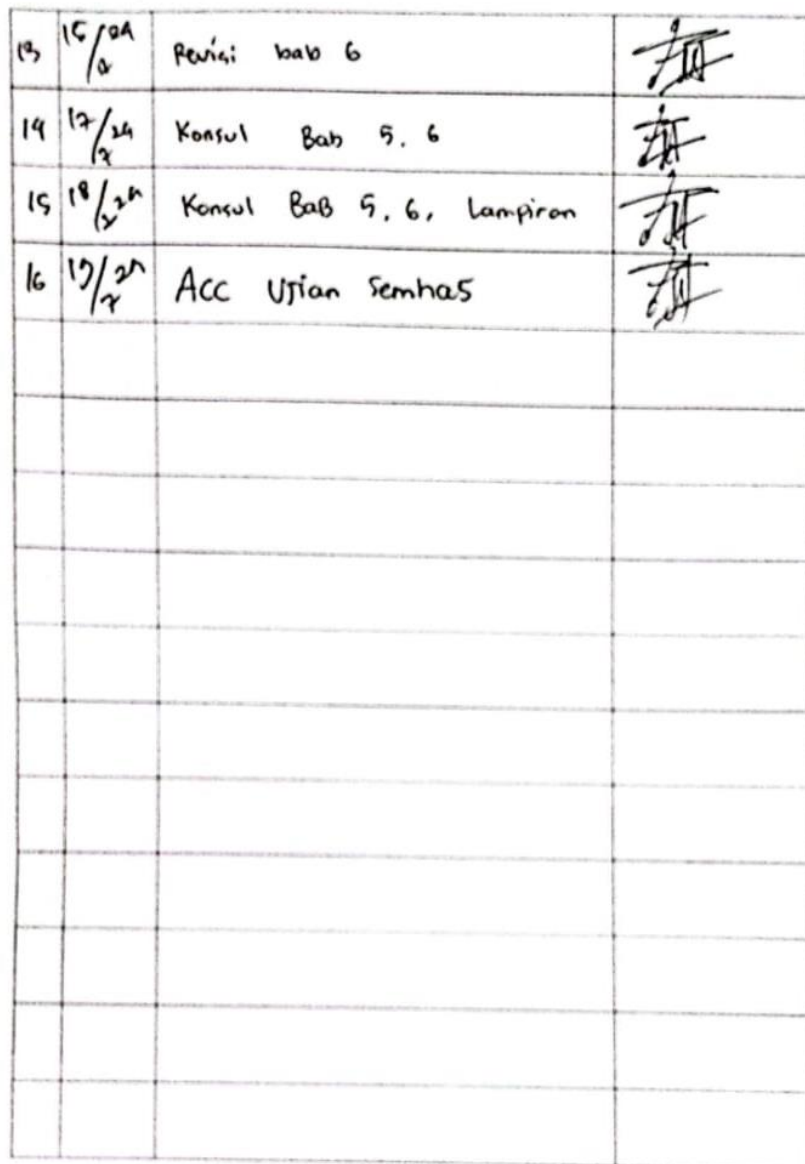 13 15/24 Revisi bab 6
14 17/24/7 Konsul Bab 5. 6
15 18/24 Konsul BaB 5, 6, Lampiran
16 19/24/7 ACC Ujian Semhas